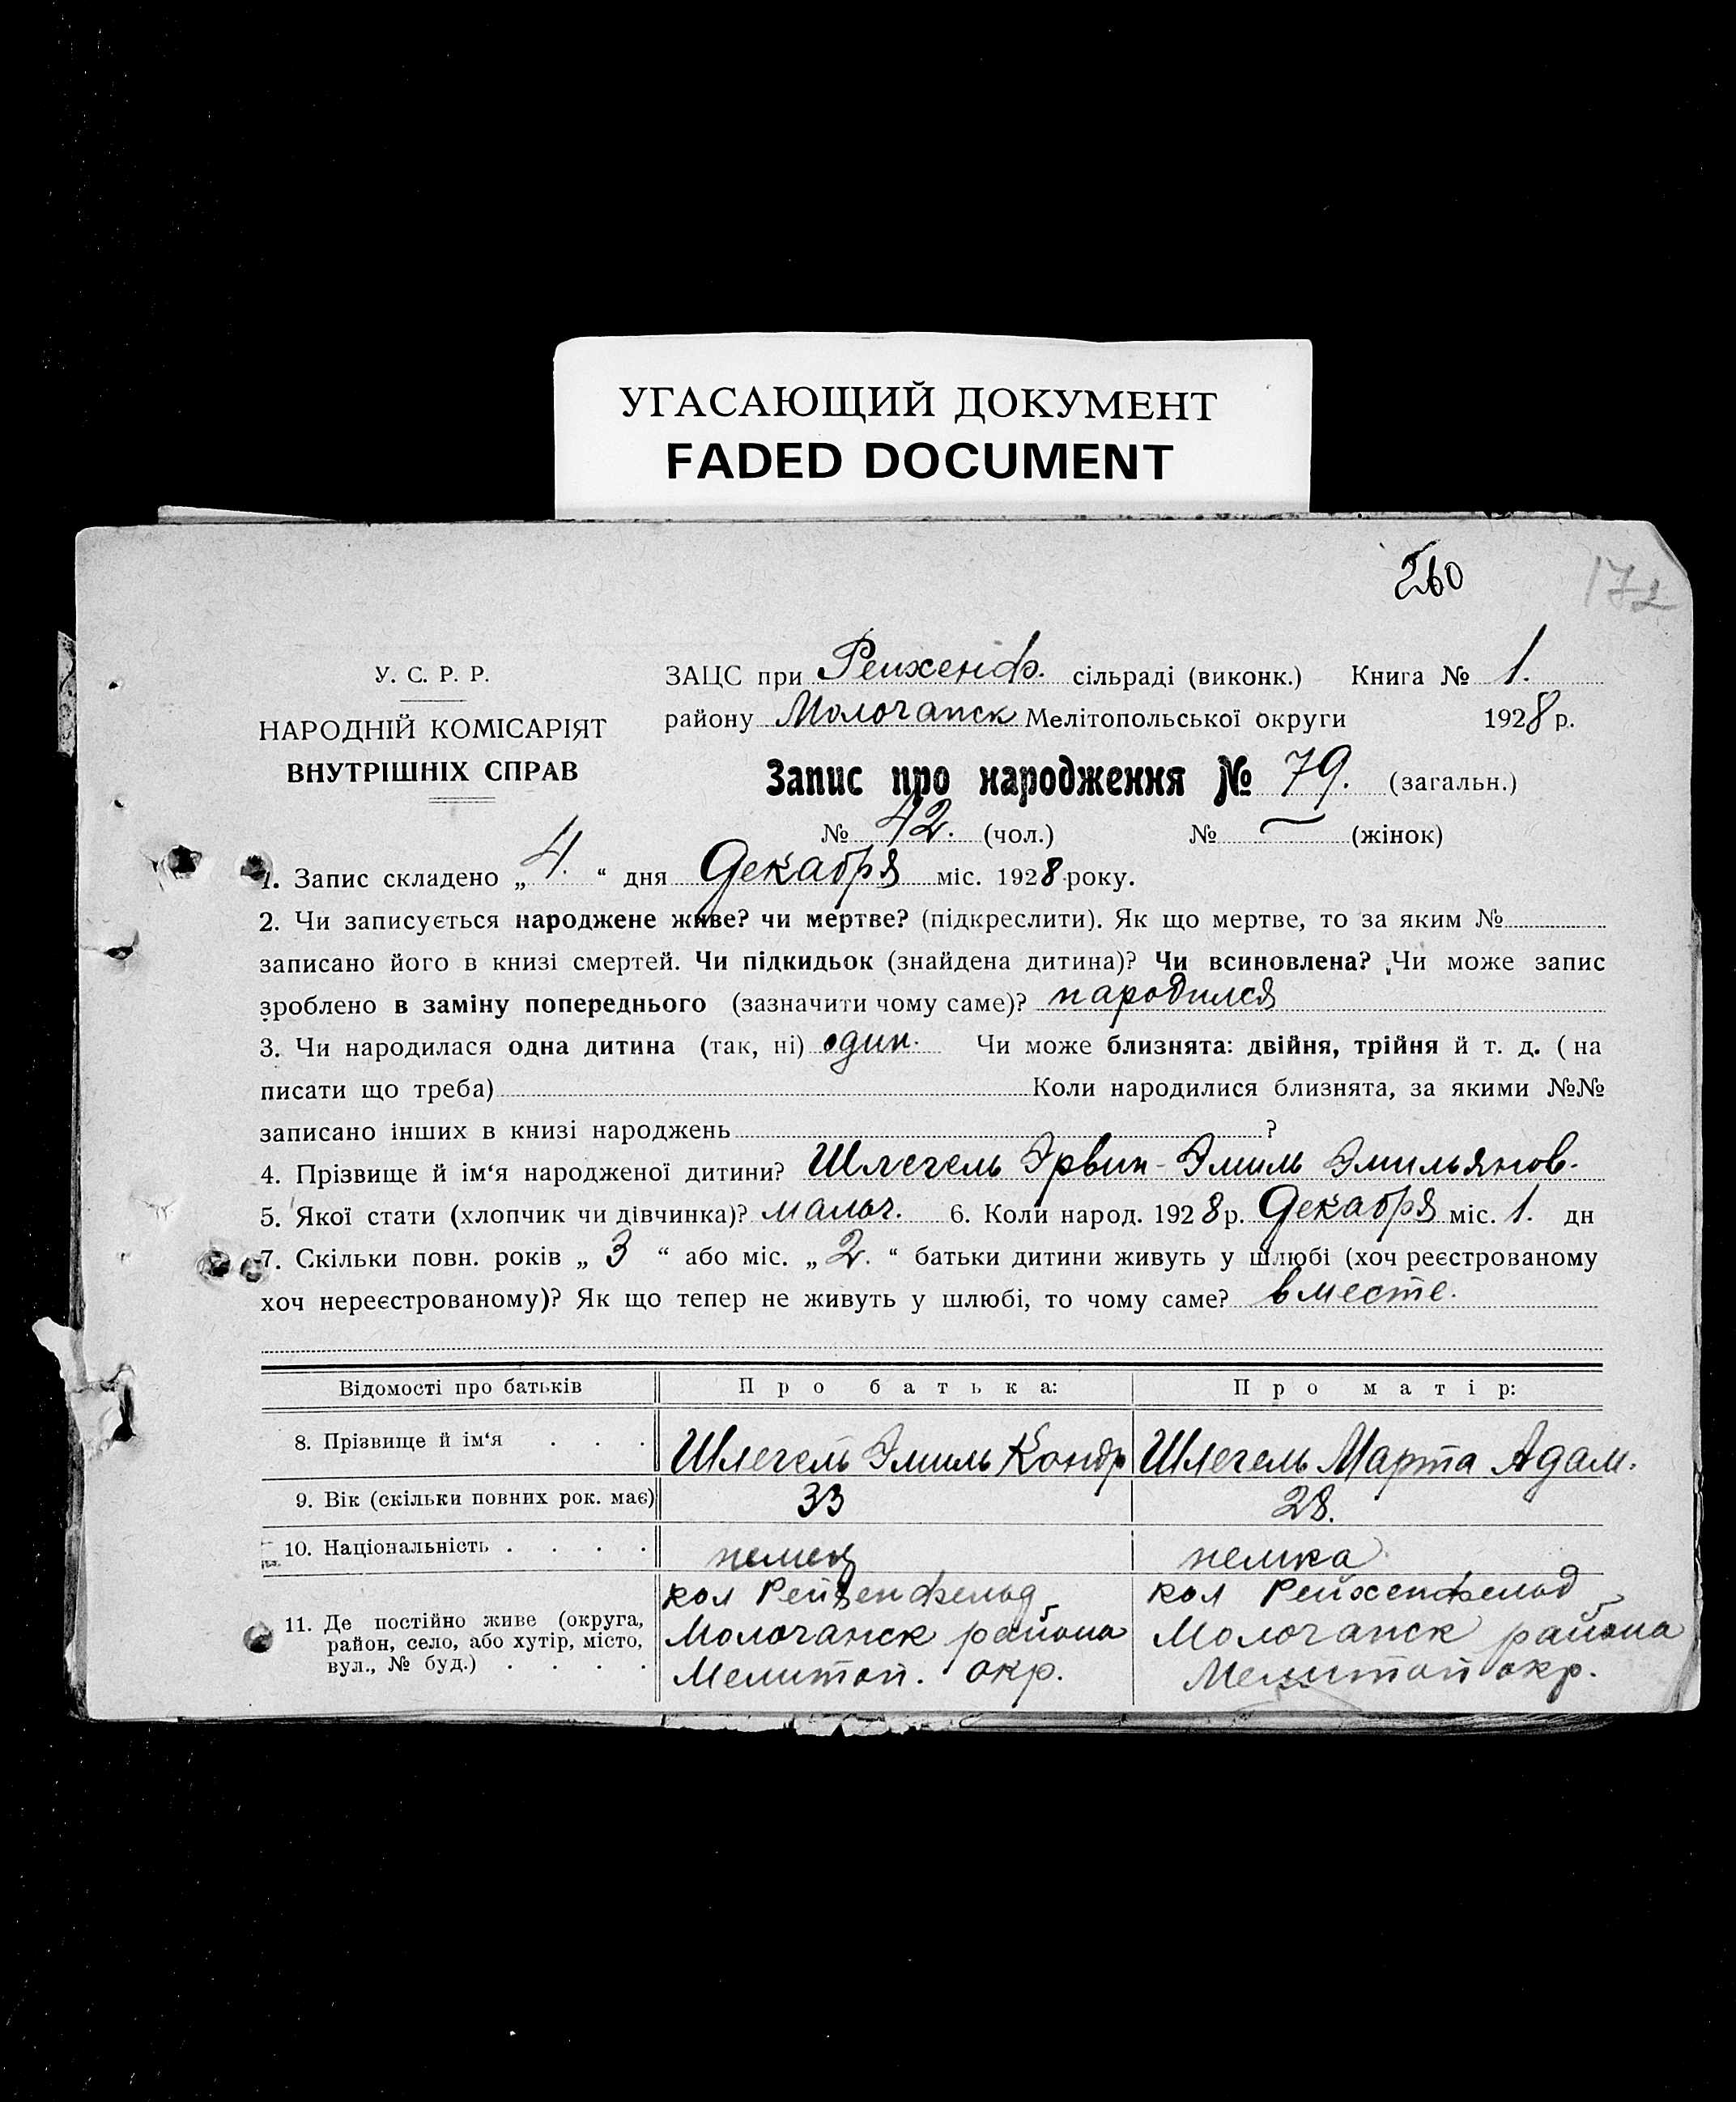 УГАСАЮЩИЙ ДОКУМЕНТ
FADED DOCUMENT
260
172
У. С. Р. Р.
НАРОДНІЙ КОМІСАРІЯТ
ВНУТРІШНІХ СПРАВ
ЗАЦС при Рейхенф. сільраді (виконк.) Книга № 1.
району Молочанск Мелітопольської округи 1928 р.
Запис про народження № 79. (загальн.)
№ 42. (чол.) № — (жінок)
1. Запис складено „ 4. “ дня Декабря міс. 1928 року.
2. Чи записується народжене живе? чи мертве? (підкреслити). Як що мертве, то за яким №
записано його в книзі смертей. Чи підкидьок (знайдена дитина)? Чи всиновлена? Чи може запис
зроблено в заміну попереднього (зазначити чому саме)? народился
3. Чи народилася одна дитина (так, ні) один. Чи може близнята: двійня, трійня й т. д. ( на
писати що треба) Коли народилися близнята, за якими №№
записано інших в книзі народжень ?
4. Прізвище й ім‘я народженої дитини? Шлегель Эрвин-Эмиль Эмильянов.
5. Якої стати (хлопчик чи дівчинка)? мальч. 6. Коли народ. 1928 р. Декабря міс. 1. дн
7. Скільки повн. років „ 3 “ або міс. „ 2. “ батьки дитини живуть у шлюбі (хоч реєстрованому
хоч нереєстрованому)? Як що тепер не живуть у шлюбі, то чому саме? вместе.
Відомості про батьків Про батька: Про матір:
8. Прізвище й ім‘я . . . Шлегель Эмиль Кондр Шлегель Марта Адам.
9. Вік (скільки повних рок. має) 33 28.
10. Національність . . . . немец немка
11. Де постійно живе (округа, район, село, або хутір, місто, вул., № буд.) . . . .
кол Рейхенфельд
Молочанск района
Мелитоп. окр.
кол Рейхенфельд
Молочанск района
Мелитоп окр.